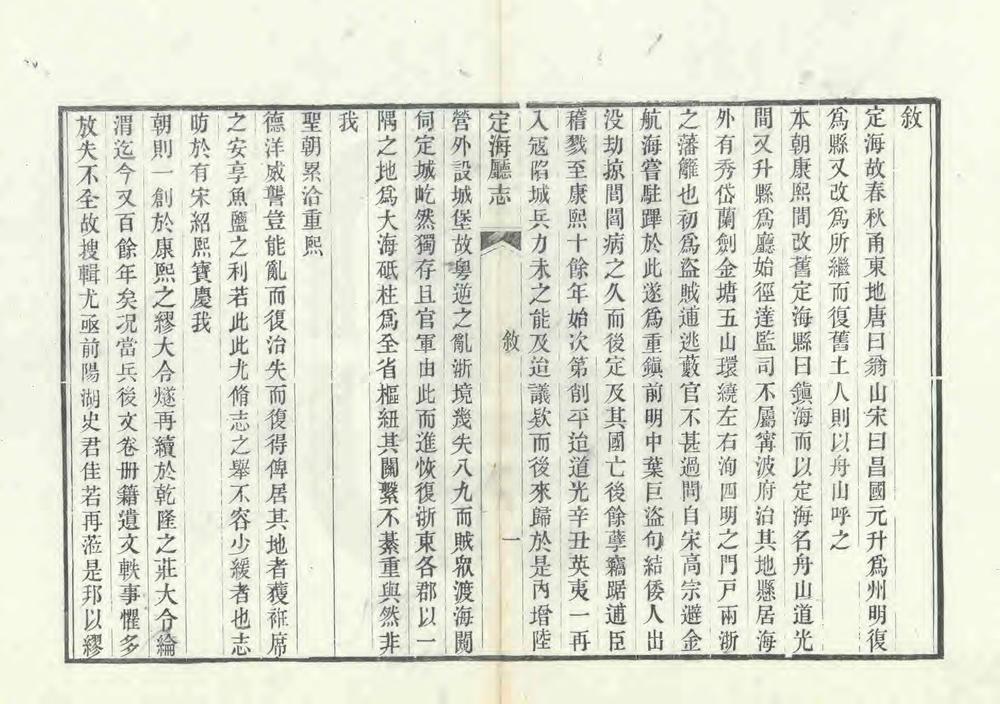 敘
定海故春秋甬東地唐曰翁山宋曰昌國元升爲州明復
爲縣又改爲所繼而復舊土人則以舟山呼之
本朝康熙間改舊定海縣曰鎭海而以定海名舟山道光
間又升縣爲廳始徑達監司不屬甯波府治其地懸居海
外有秀岱蘭劍金塘五山環繞左右洵四明之門戸兩浙
之藩籬也初爲盜賊逋逃藪官不甚過問自宋高宗避金
航海嘗駐蹕於此遂爲重鎭前明中葉巨盜句結倭人出
没劫掠閭閻病之久而後定及其國亡後餘孽竊踞逋臣
稽戮至康熙十餘年始次第削平迨道光辛丑英夷一再
入寇陷城兵力未之能及迨議欵而後來歸於是內增陸
定海廳志
敘
一
營外設城堡故粵逆之亂浙境幾失八九而賊眾渡海闖
伺定城屹然獨存且官軍由此而進恢復浙東各郡以一
隅之地爲大海砥柱爲全省樞紐其關繫不綦重與然非
我
聖朝累洽重熙
德洋威讋豈能亂而復治失而復得俾居其地者獲袵席
之安享魚鹽之利若此此尤脩志之舉不容少緩者也志
昉於有宋紹熙寶慶我
朝則一創於康熙之繆大令燧再續於乾隆之莊大令綸
渭迄今又百餘年矣况當兵後文卷册籍遺文軼事懼多
放失不全故搜輯尤亟前陽湖史君佳若再蒞是邦以繆